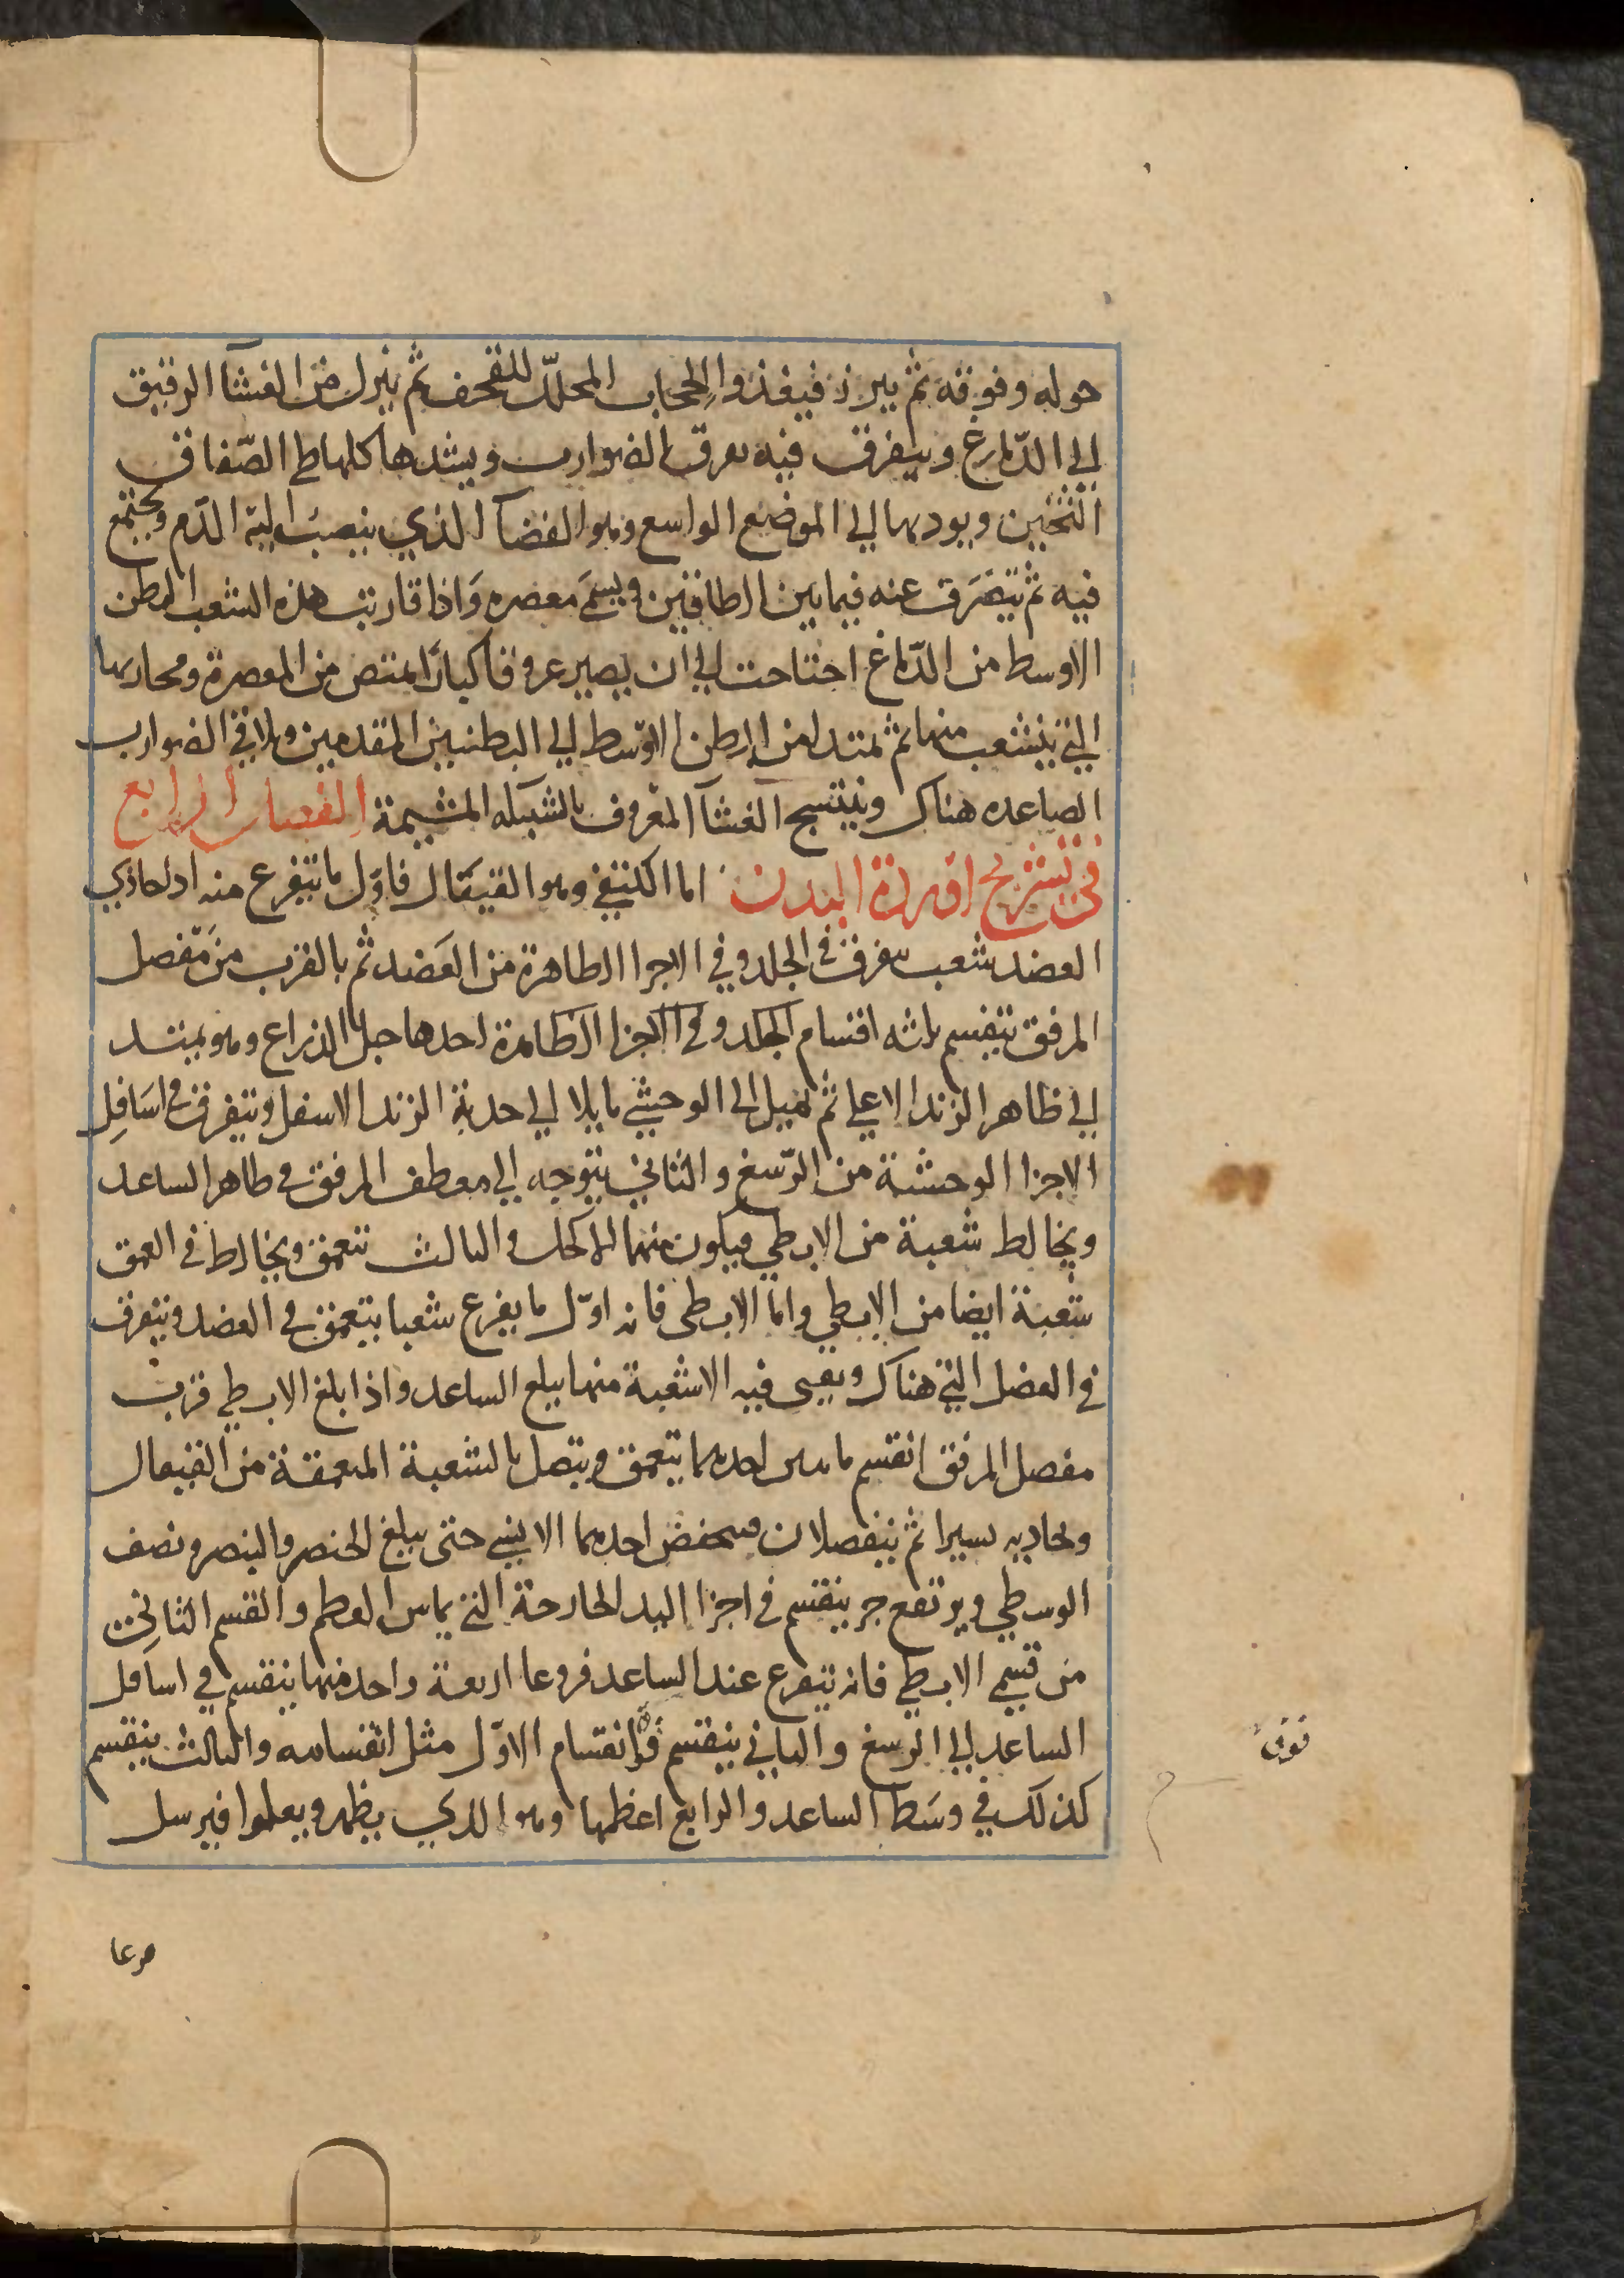 حوله وفوقه ثم يبرز فيغذوا الحجاب المحلل للقحف ثم ينزل من الغشا الرقيق
الي الدماغ ويتفرق فيه تفرق الضوارب ويشدها كلها طي الصفاق
الثخين ويوديها الي الموضع الواسع وهو الفضآ الذي ينصب اليه الدم ويجتمع
فيه ثم يتفرق عنه فيما بين الطاقين ويسمي معصره واذا قاربت هذه الشعب البطن
الاوسط من الدماغ احتاجت الي ان يصير عروقا كبارا تمتص من المعصرة ومجاريها
التي يتشعب منها ثم تمتد من البطن الاوسط الي البطنين المقدمين ويلاقي الضوارب
الصاعده هناك وينتسج الغشآ المعروف بالشبكه المشيمة الفصل الرابع
في تشريح اوردة اليدين اما الكتفي وهو القيفال فاول ما يتفرع منه اذا حاذي
العضد شعب يتفرق في الجلد وفي الاجزا الظاهرة من العضد ثم بالقرب من مفصل
المرفق ينقسم ثلثه اقسام الجلد وفي الاجزا الظاهرة احدها حبل الذراع وهو يمتد
الي ظاهر الزند الاعلي ثم يميل الي الوحشي مايلا الي حدبة الزند الاسفل ويتفرق في اسافل
الاجزا الوحشية من الرسغ والثاني يتوجه الي معطف المرفق في ظاهر الساعد
ويخالط شعبة من الابطي فيكون منهما الاكحل والثالث يتعمق ويخالط في العمق
شعبة ايضا من الابطي واما الابطي فانه اول ما يفرع شعبا يتعمق في العضد ويتفرق
في العضل التي هناك ويفني فيه الا شعبة منها يبلغ الساعد واذا بلغ الابطي قرب
مفصل المرفق انقسم باثنين احدهما يتعمق ويتصل بالشعبة المتعمقة من القيفال
ويحاذيه يسيرا ثم ينفصلان فينخفض احدهما الي الانسي حتي يبلغ الخنصر والبنصر ونصف
الوسطي ويرتفع جز ينقسم في اجزا اليد الخارجة التي يماس العظم والقسم الثاني
من قسمي الابطي فانه يتفرع عند الساعد فروعا اربعة واحد منها ينقسم في اسافل
الساعد الي الرسغ والثاني ينقسم فوق انقسام الاول مثل انقسامه والثالث ينقسم
كذلك في وسط الساعد والرابع اعظمها وهو الذي يظهر ويعلوا فيرسل
فوق
فرعا